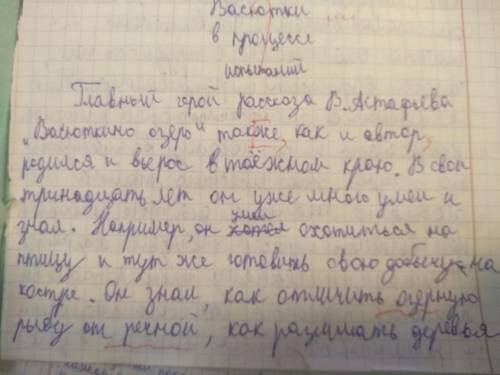 Васютки
в процессе
испытаний
Главный герой рассказа В. Астафьева
„Васюткино озеро" также, как и автор,
родился и вырос в таёжном краю. В свои
тринадцать лет он уже много умел и
умел
знал. Например, он хотел охотиться на
птицу и тут же готовить свою добычу на
костре. Он знал, как отличить озерную
рыбу от речной, как различать деревья